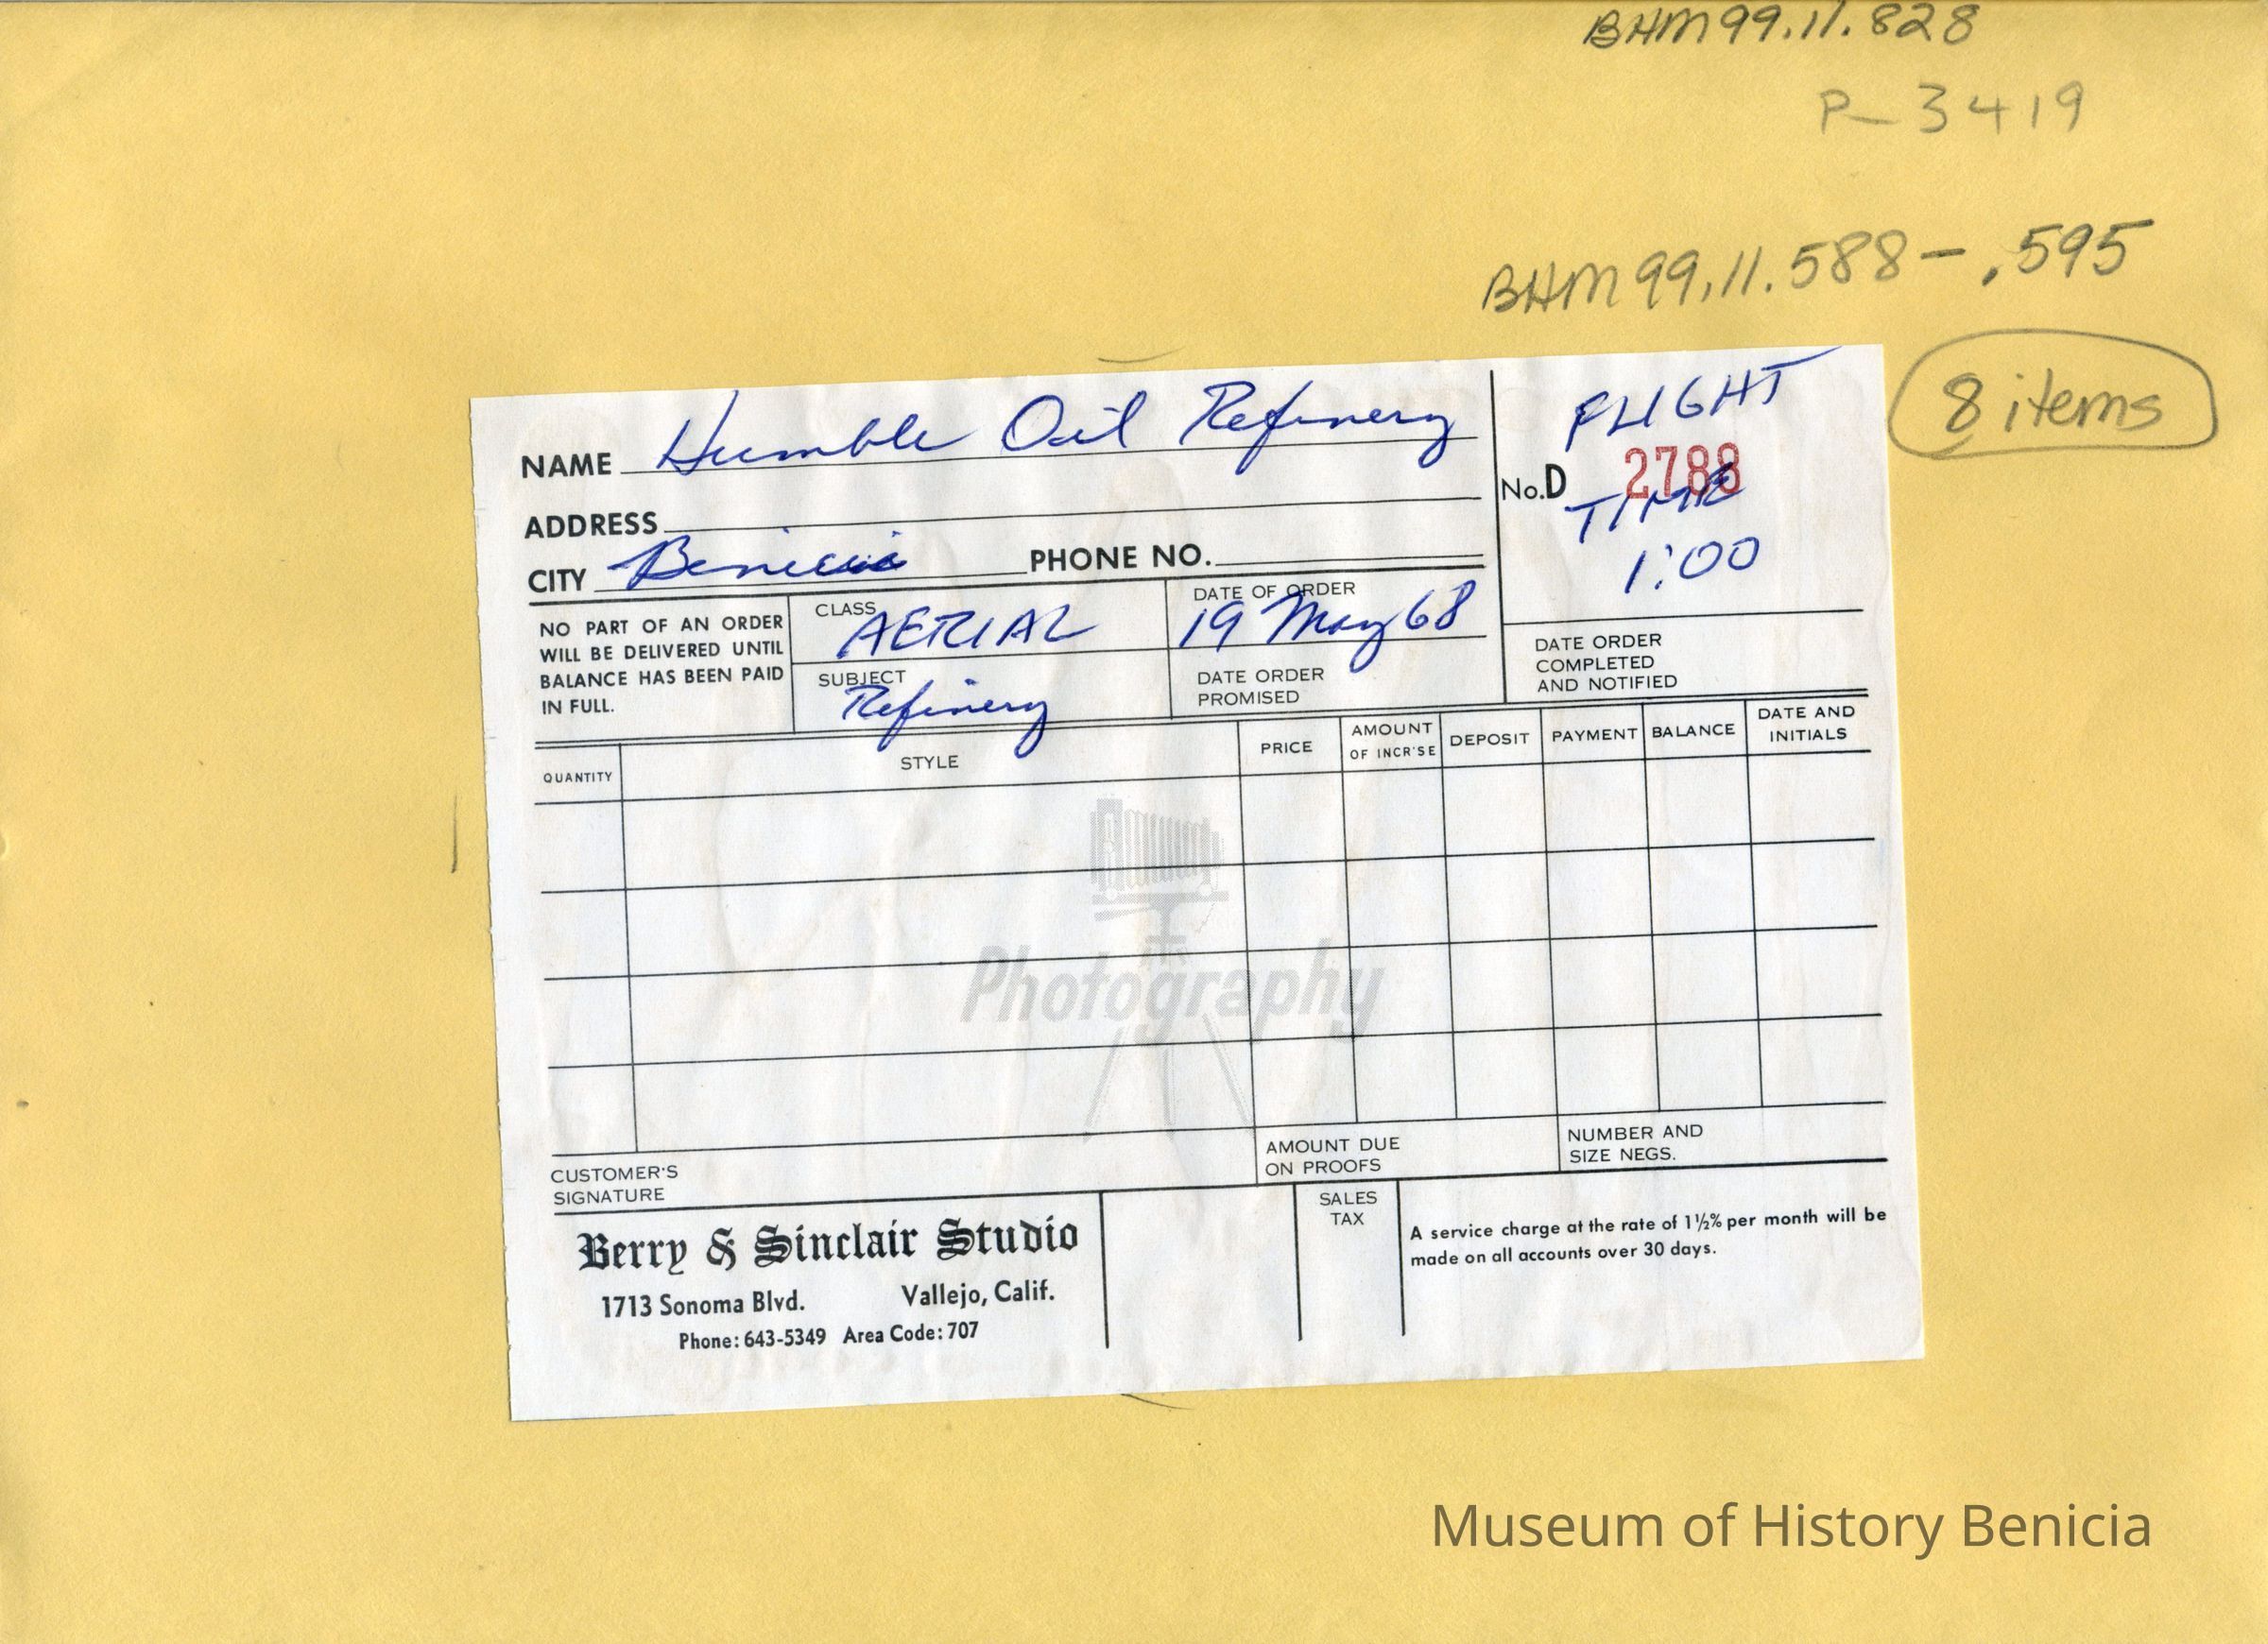 BHM99.11.828
P-3419
BHM99.11.588-.595
8 items
NAME Humble Oil Refinery
FLIGHT
No.D 2788
TIME
1:00
ADDRESS
CITY Benicia PHONE NO.
NO PART OF AN ORDER
WILL BE DELIVERED UNTIL
BALANCE HAS BEEN PAID
IN FULL.
CLASS
AERIAL
DATE OF ORDER
19 May 68
SUBJECT
Refinery
DATE ORDER
PROMISED
DATE ORDER
COMPLETED
AND NOTIFIED
QUANTITY
STYLE
PRICE
AMOUNT
OF INCR'SE
DEPOSIT
PAYMENT
BALANCE
DATE AND
INITIALS
Photography
CUSTOMER'S
SIGNATURE
AMOUNT DUE
ON PROOFS
NUMBER AND
SIZE NEGS.
Berry & Sinclair Studio
1713 Sonoma Blvd. Vallejo, Calif.
Phone: 643-5349 Area Code: 707
SALES
TAX
A service charge at the rate of 1½% per month will be
made on all accounts over 30 days.
Museum of History Benicia